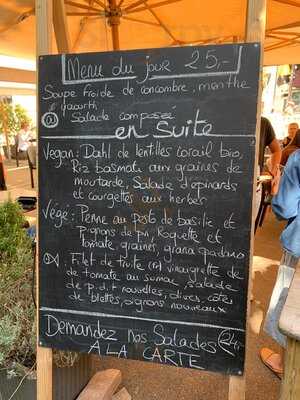 Menu du jour 25,-
Soupe froide de concombre, menthe
& yaourth
où Salade composée
en suite
Vegan: Dahl de lentilles corail bio,
Riz basmati aux graines de
moutarde, Salade d'épinards
et courgettes aux herbes
Végé: Penne au pesto de basilic et
Pignons de pin, Roquette et
Tomate, graines, grana padano
Filet de truite (CH) vinaigrette de
de tomate au sumac, salade
de p.d.t nouvelles, olives, côtes
de blettes, oignons nouveaux
Demandez nos Salades 24,-
A LA CARTE